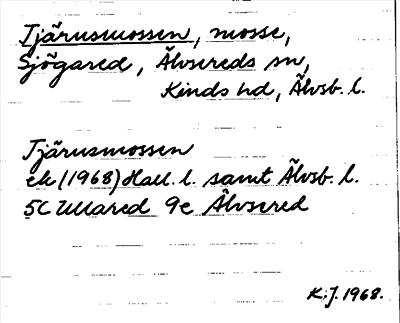 Tjärusmossen, mosse,
Sjögared, Älvsereds sn,
Kinds hd, Älvsb. l.
Tjärusmossen
ek (1968) Hall. l. samt Älvsb. l.
5C Ullared 9e Älvsered
K.J. 1968.